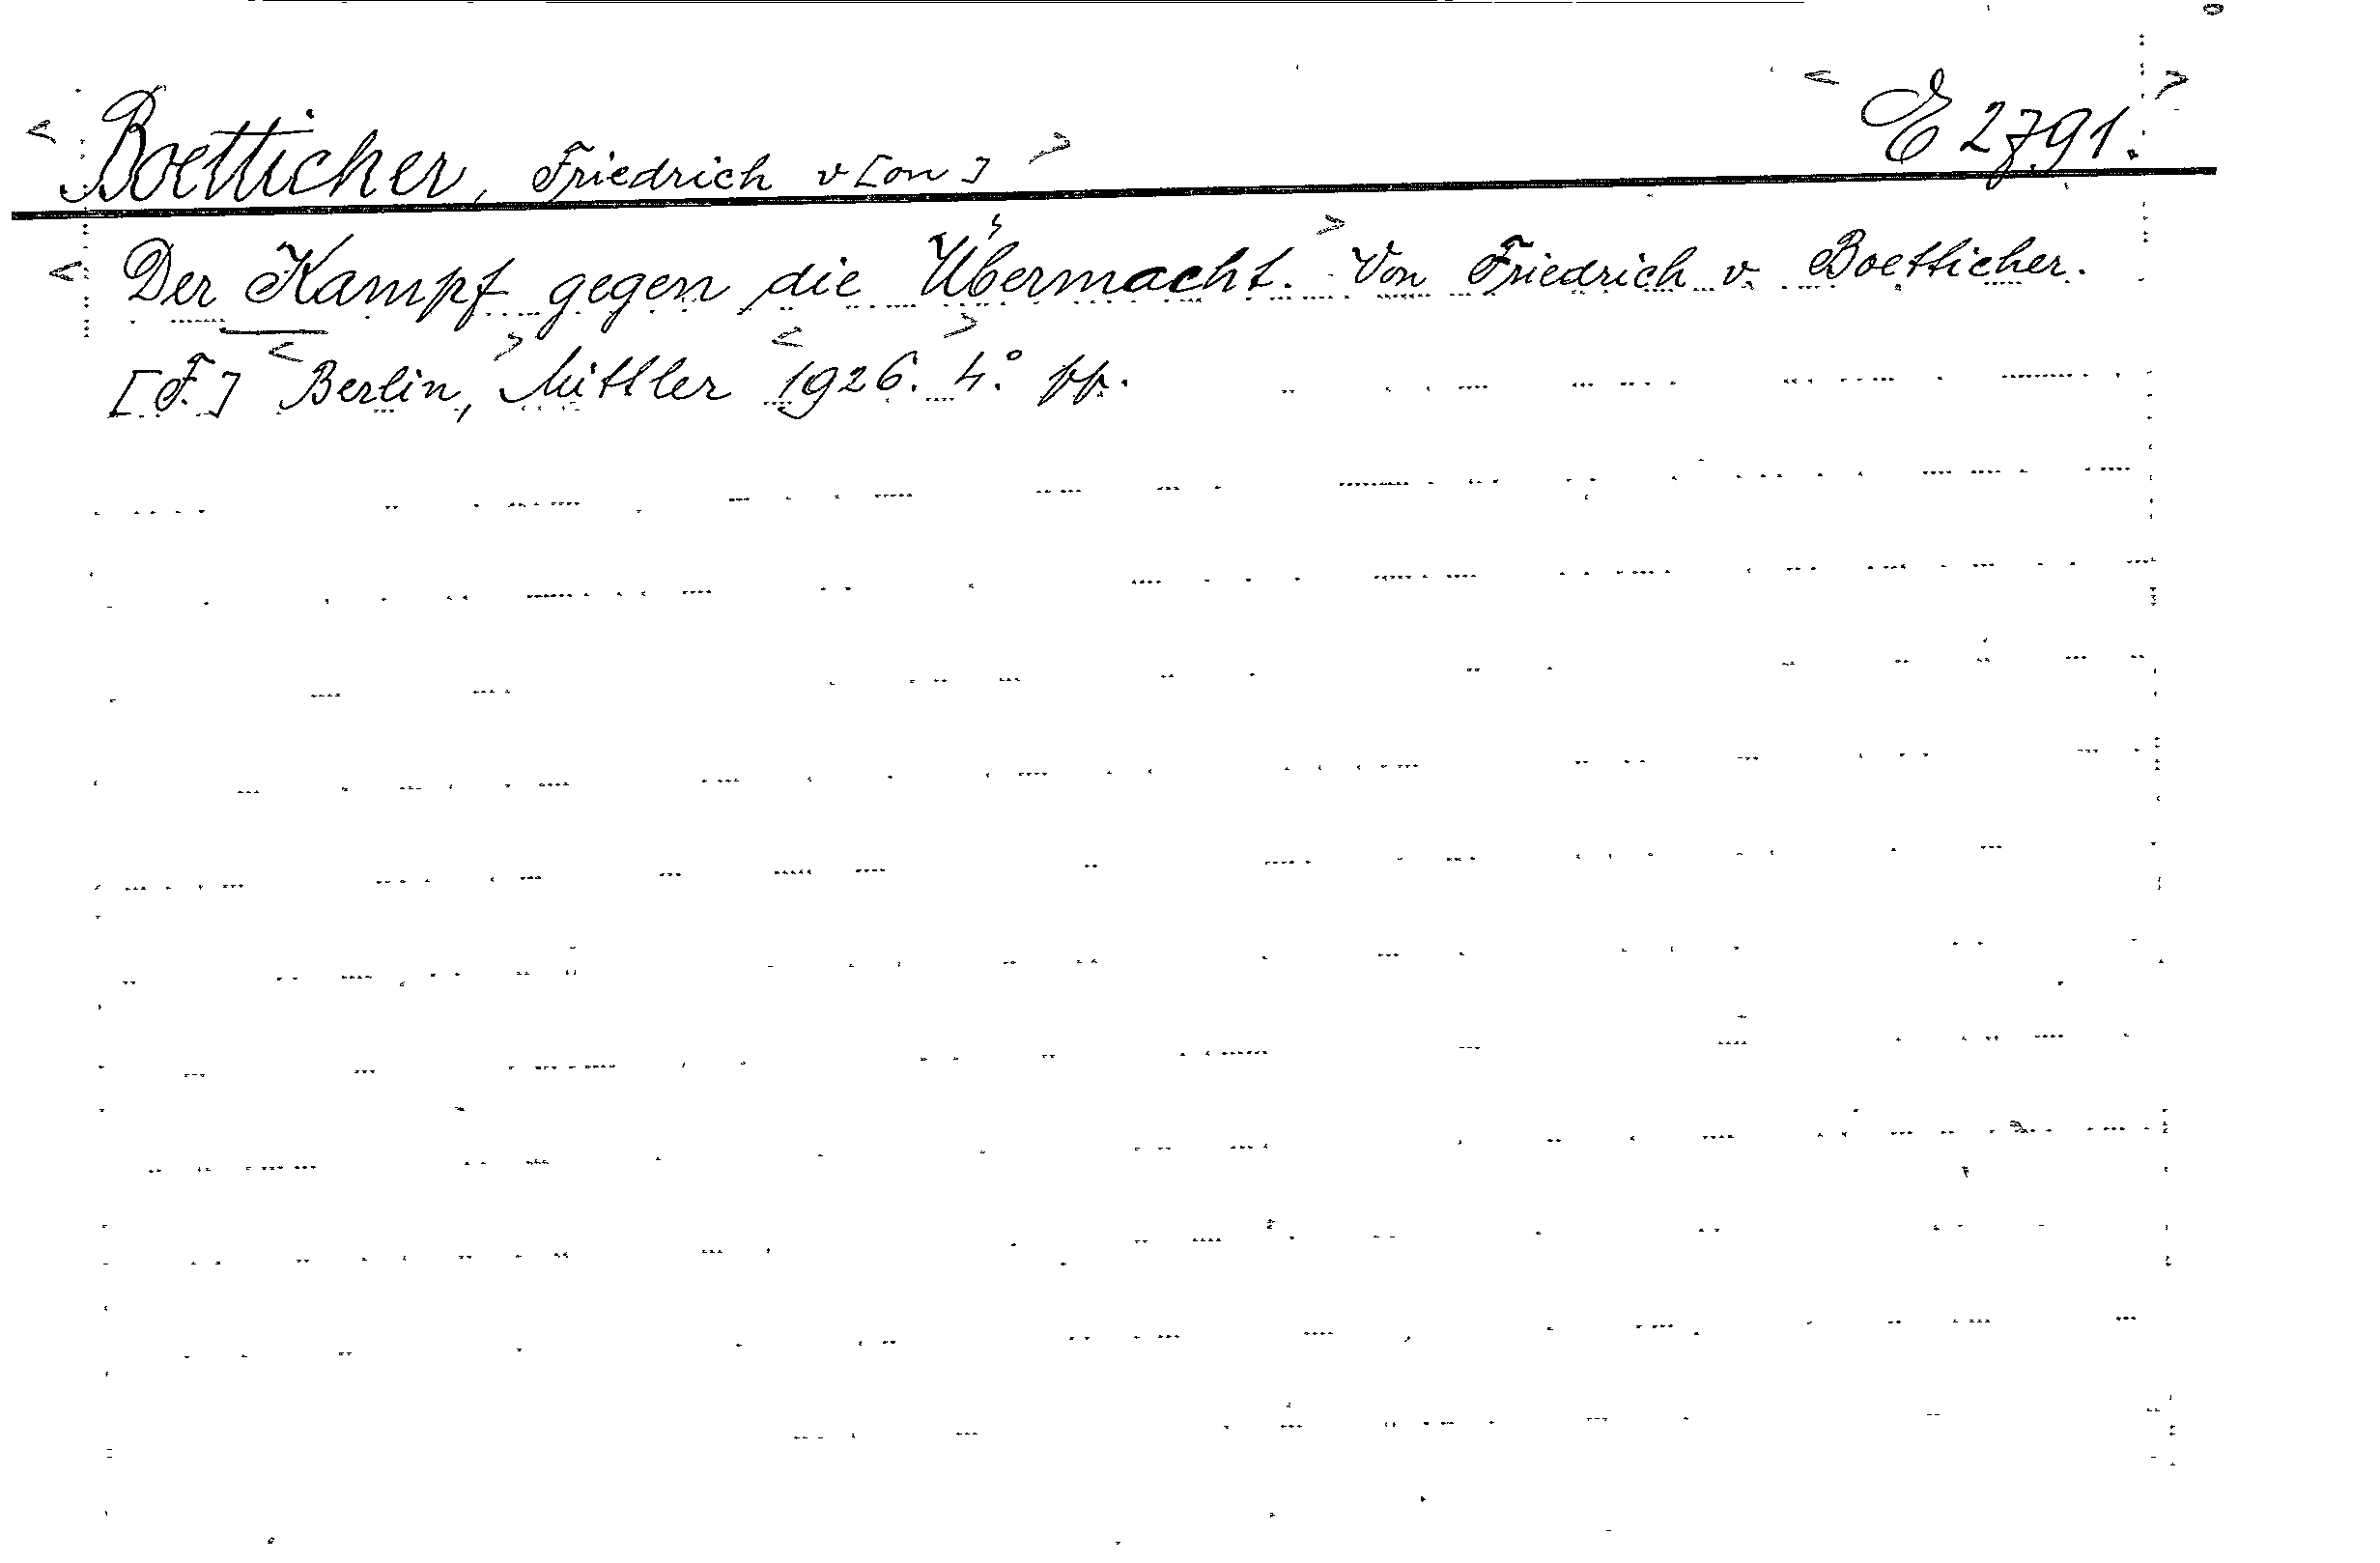 < Boetticher, Friedrich v[on] > < E 2791. >
< Der Kampf gegen die Übermacht. > Von Friedrich v. Boetticher.
[F.] < Berlin, > Mittler < 1926. > 4.° pp.